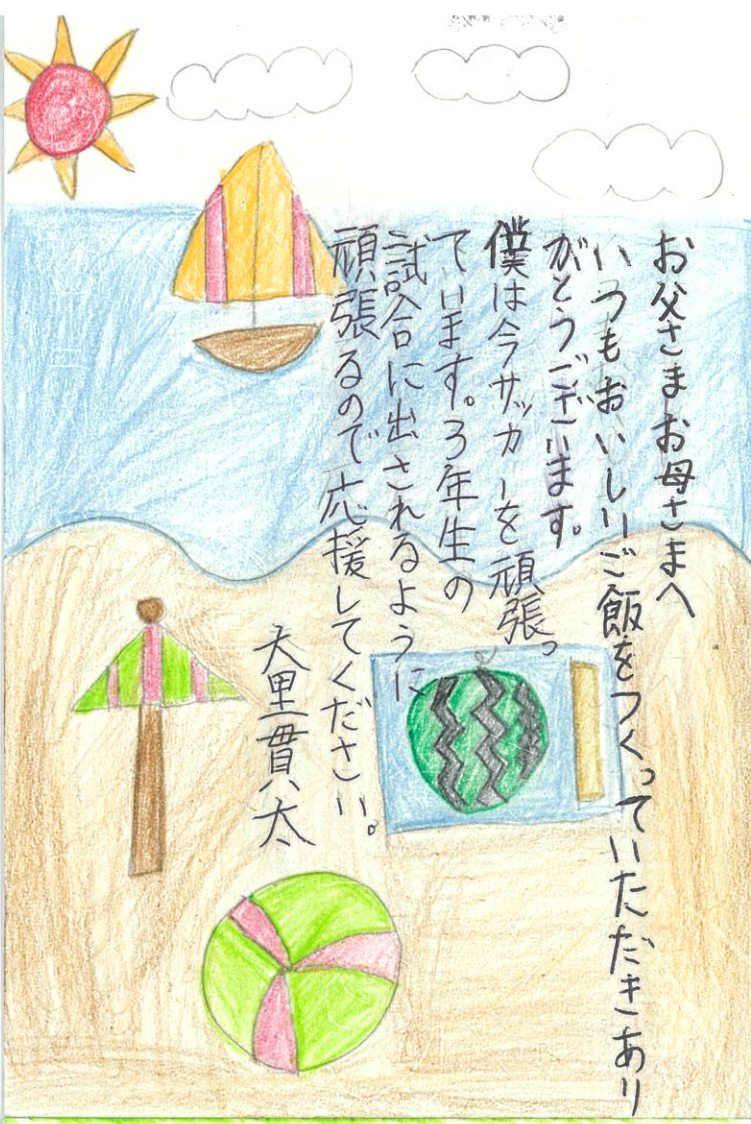 お父さまお母さまへ
いつもおいしいご飯をつくっていただきあり
がとうございます。
僕は今サッカーを頑張っ
ています。3年生の
試合に出されるように
頑張るので応援してください。
大里貫太